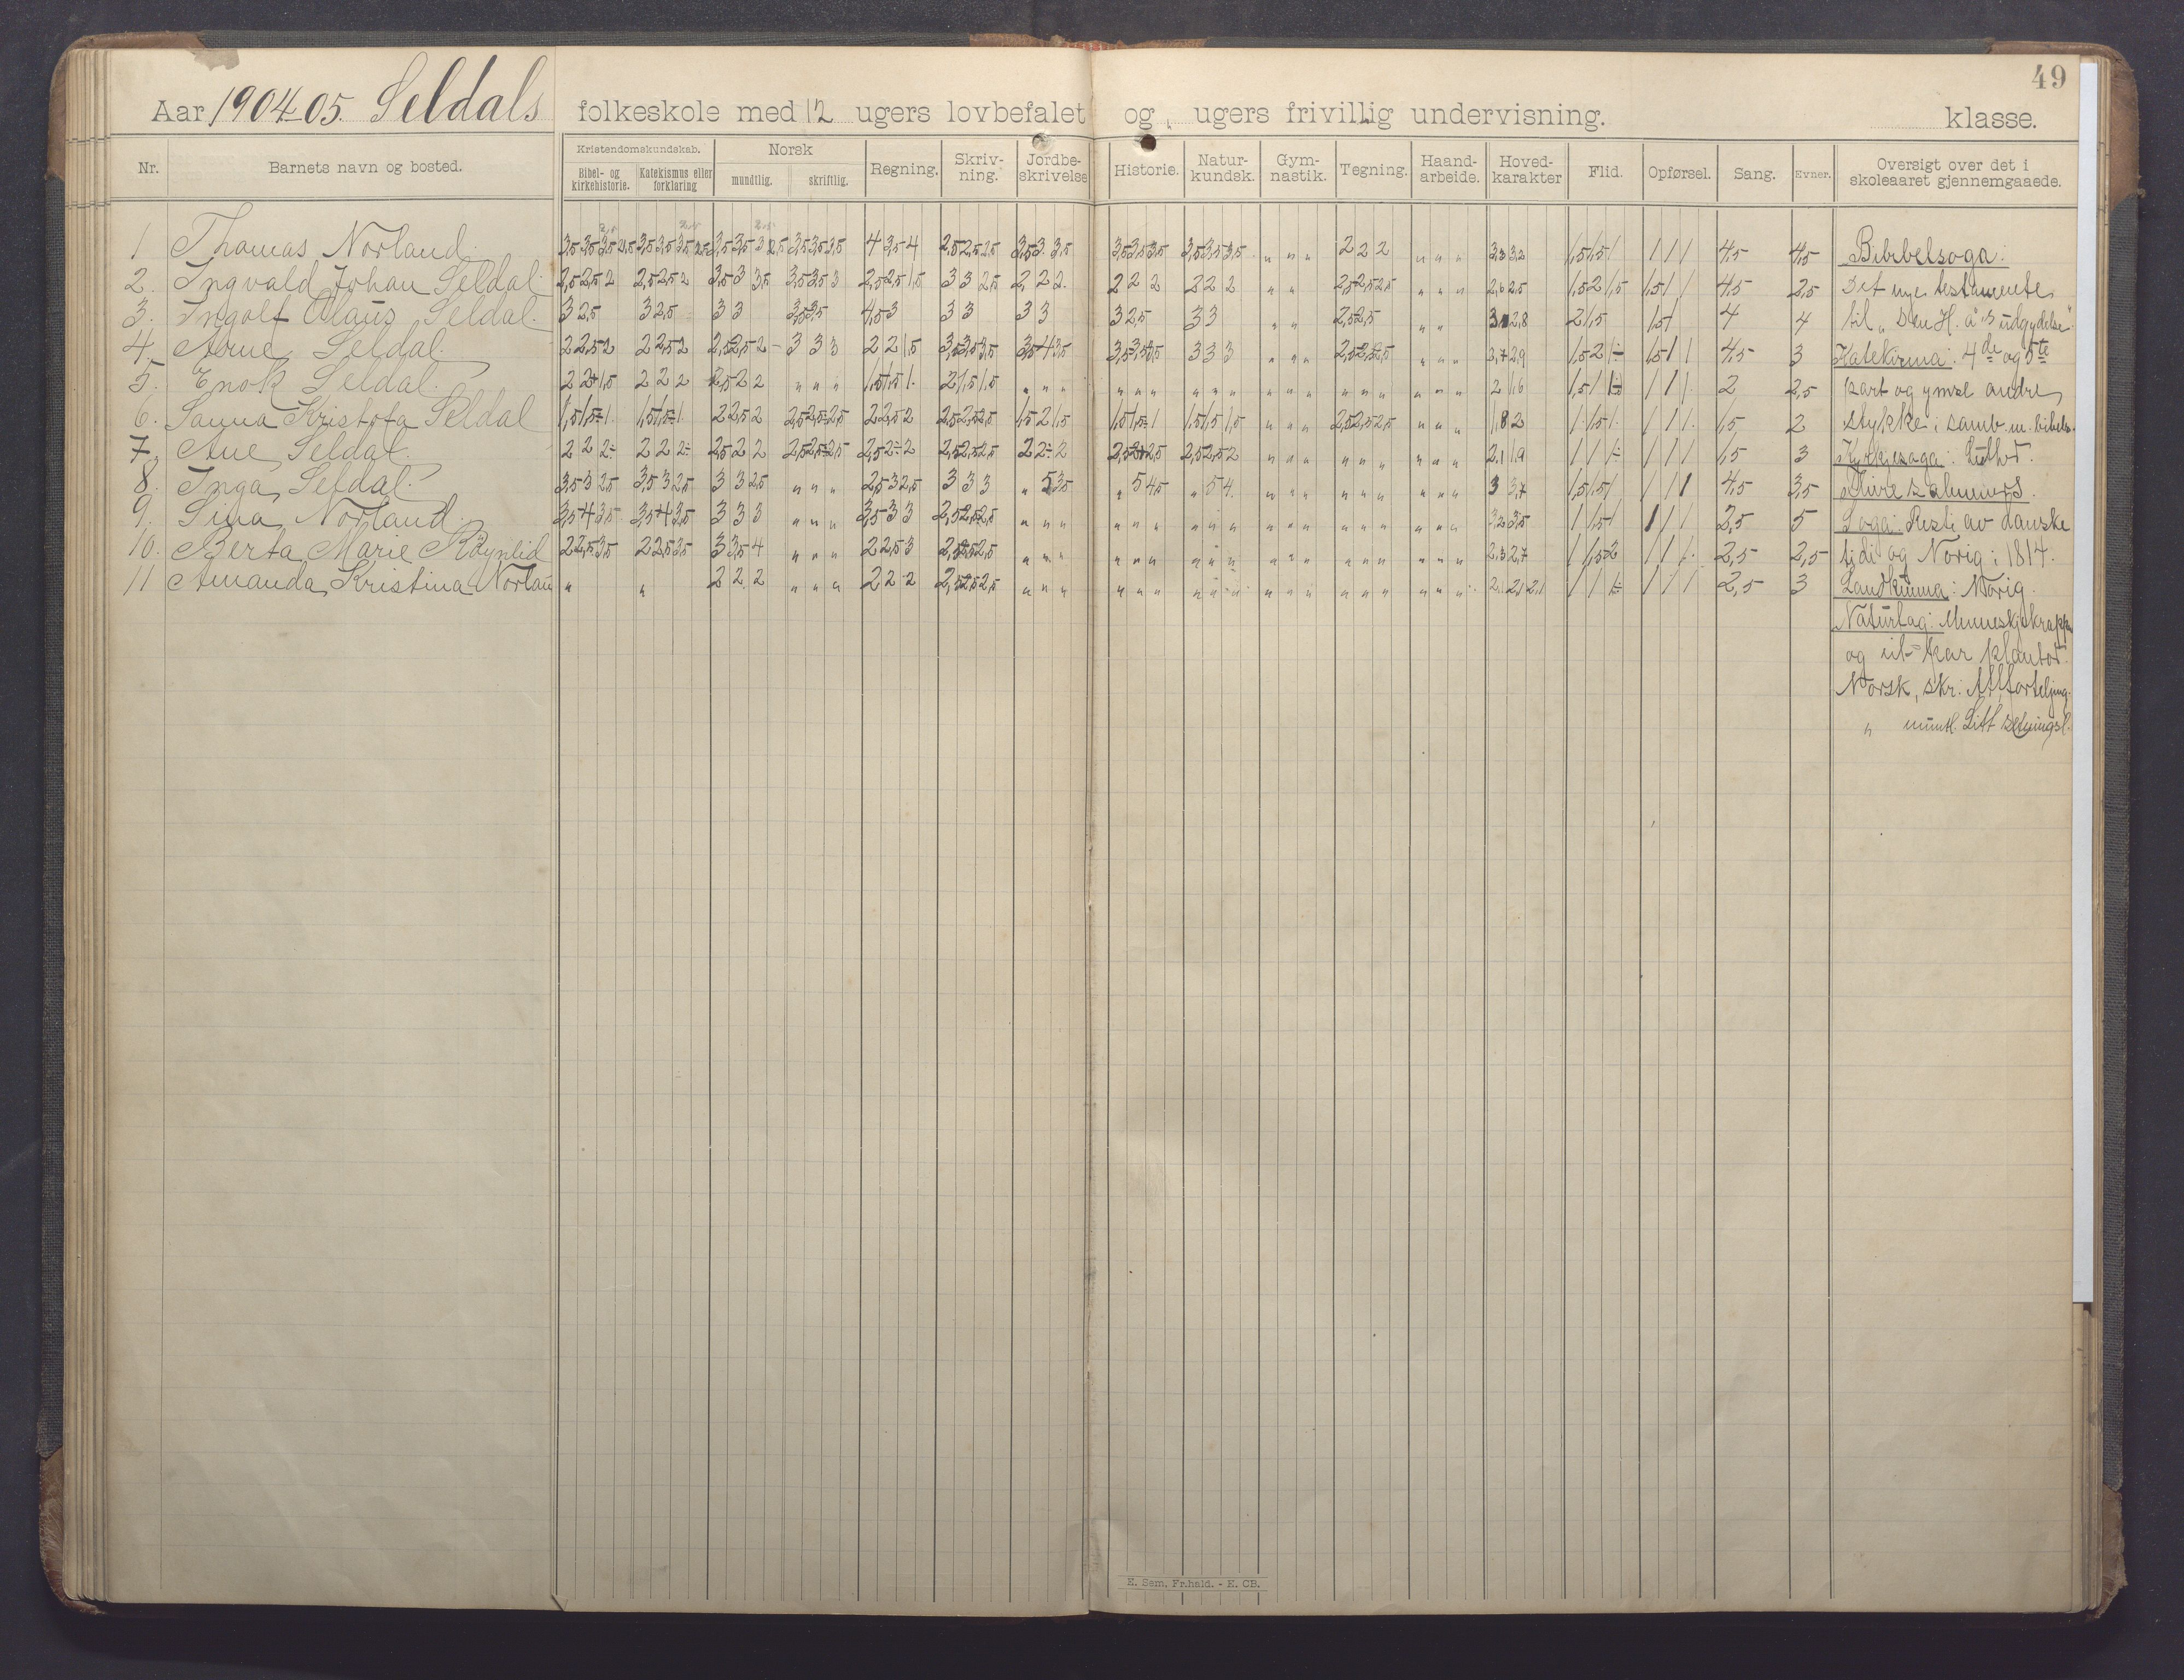 49
Aar 1904-05. Seldals folkeskole med 12 ugers lovbefalet og „ ugers frivillig undervisning. klasse.
Nr. Barnets navn og bosted. Kristendomskundskab. Norsk Regning. Skriv- ning. Jordbe- skrivelse Historie. Natur- kundsk. Gym- nastik. Tegning. Haand- arbeide. Hoved- karakter Flid. Opførsel. Sang. Evner. Oversigt over det i skoleaaret gjennemgaaede.
Bibel- og kirkehistorie. Katekismus eller forklaring mundtlig. skriftlig.
1 Thomas Norland. 4 3,5 4 2,5 2,5 2,5 3,5 3 3,5 3,5 3,5 3,5 3,5 3,5 3,5 „ „ „ 2 2 2 „ „ „ 3,3 3,2 1,5 1,5 1 1 1 1 4,5 4,5 Bibelsoga:
2. Ingvald Johan Seldal. 2,5 2,5 2 2,5 2,5 2 3,5 3 3,5 3,5 3,5 3 2,5 2,5 1,5 3 3 2,5 2, 2 2. 2 2 2 2 2 2 „ „ 2,5 2,5 2,5 „ „ „ 2,6 2,5 1,5 2 1,5 1,5 1 1 4,5 2,5 Det nye testamente
3. Ingolf Olaus Seldal. 3 2,5 3 2,5 3 3 3,5 3,5 4,5 3 3 3 3 3 3 2,5 3 3 „ „ 2,5 2,5 „ „ 3 2,8 2 1,5 1,5 1 4 4 til „Den H. å's udgydelse".
4. Arne Seldal. 2 2,5 2 2 2,5 2 2,5 2,5 2 – 3 3 3 2 2 1,5 3,5 3,5 3,5 3,5 4 3,5 3,5 3,5 3,5 3 3 3 „ „ „ 2,5 2,5 2,5 „ „ „ 2,7 2,9 1,5 2 1 1,5 1 1 4,5 3 Katekisma: 4de og 5te
5. Enok Seldal. 2 2 1,5 2 2 2 2,5 2 2 „ „ „ 1,5 1,5 1. 2 1,5 1,5 „ „ „ „ „ „ „ „ „ „ „ „ „ „ „ „ „ „ 2 1,6 1,5 1 1 1 1 1. 2 2,5 part og ymse andre
6. Sanna Kristofa Seldal 1,5 1,5 1 1,5 1,5 1 2 2,5 2 2,5 2,5 2,5 2 2,5 2 2,5 2,5 2,5 1,5 2 1,5 1,5 1,5 1 1,5 1,5 1,5 „ „ „ 2,5 2,5 2,5 „ „ „ 1,8 2 1 1,5 1. 1 1 1. 1,5 2 stykke i samb. m. bibels.
7. Ane Seldal. 2 2 2 2 2 2 2,5 2 2 2,5 2,5 2,5 2,5 2 2 2,5 2,5 2,5 2 2 2 2,5 2 2,5 2,5 2,5 2 „ „ „ „ „ „ „ „ „ 2,1 1,9 1 1 1 1 1 1 1,5 3 Kyrkjesoga: Luther.
8. Inga Seldal. 3,5 3 2,5 3,5 3 2,5 3 3 2,5 „ „ „ 2,5 3 2,5 3 3 3 „ 5 3,5 „ 5 4,5 „ 5 4. „ „ „ „ „ „ „ „ „ 3 3,7 1,5 1,5 1 1 1 1 4,5 3,5
9. Sina Norland. 3,5 4 3,5 3,5 4 3,5 3 3 3 „ „ „ 3,5 3 3 2,5 2,5 2,5 „ „ „ „ „ „ „ „ „ „ „ „ „ „ „ „ „ „ 3,2 3,5 1 1,5 1 1 1 1 2,5 5 Soga: Resti av danske
10. Berta Marie Röynlid 2 2,5 3,5 2 2,5 3,5 3 3,5 4 „ „ „ 2 2,5 3 2,5 2,5 2,5 „ „ „ „ „ „ „ „ „ „ „ „ „ „ „ „ „ „ 2,3 2,7 1 1,5 2 1 1 1. 2,5 2,5 tidi og Norig i 1814.
11 Amanda Kristina Norlan „ „ 2 2 2 „ „ „ 2 2 2 2,5 2,5 2,5 „ „ „ „ „ „ „ „ „ „ „ „ „ „ „ „ „ „ 2,1 2,1 2,1 1 1 1 1 1 1 2,5 3 Landkunna: Norig.
Naturlag: Menneskjekroppen
og
Norsk, skr: Atforteljing.
„ muntl. Litt setningsl.
E. Sem. Fr.hald. - E. CB.